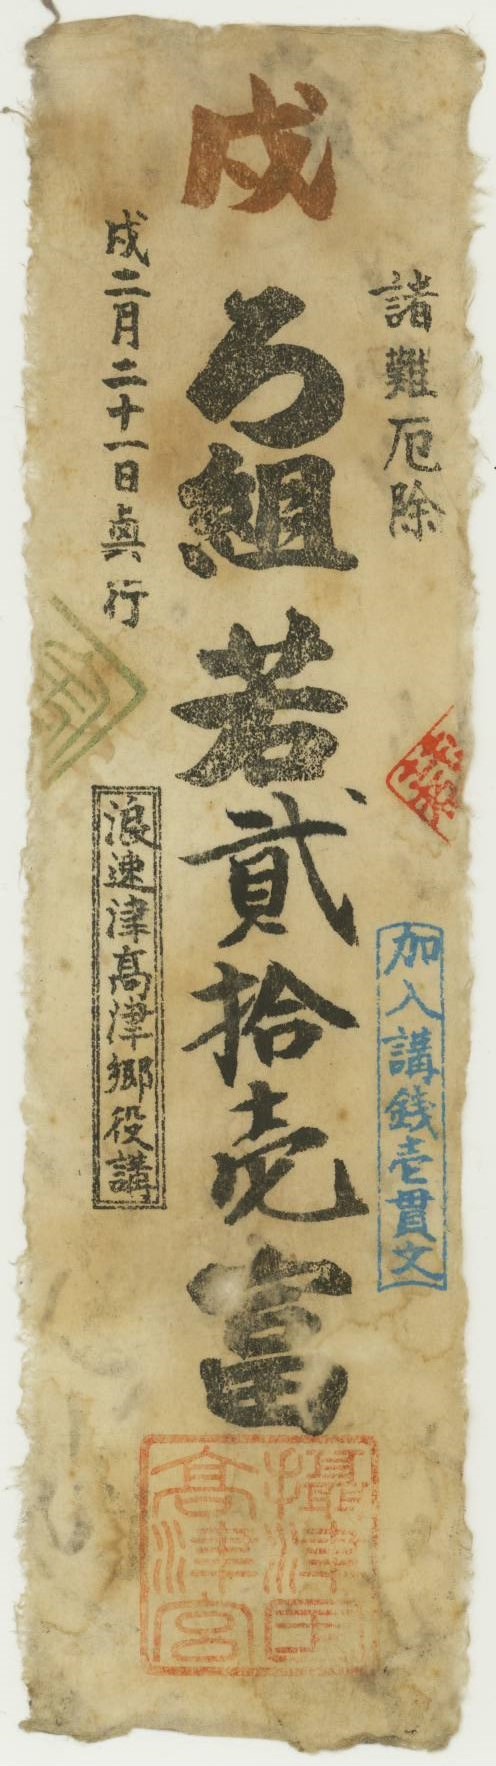 戌
諸難厄除
加入講銭壱貫文
ろ組 若 貳拾壱 富
戌二月二十一日興行
浪速津高津郷役講
攝津国
高津宮